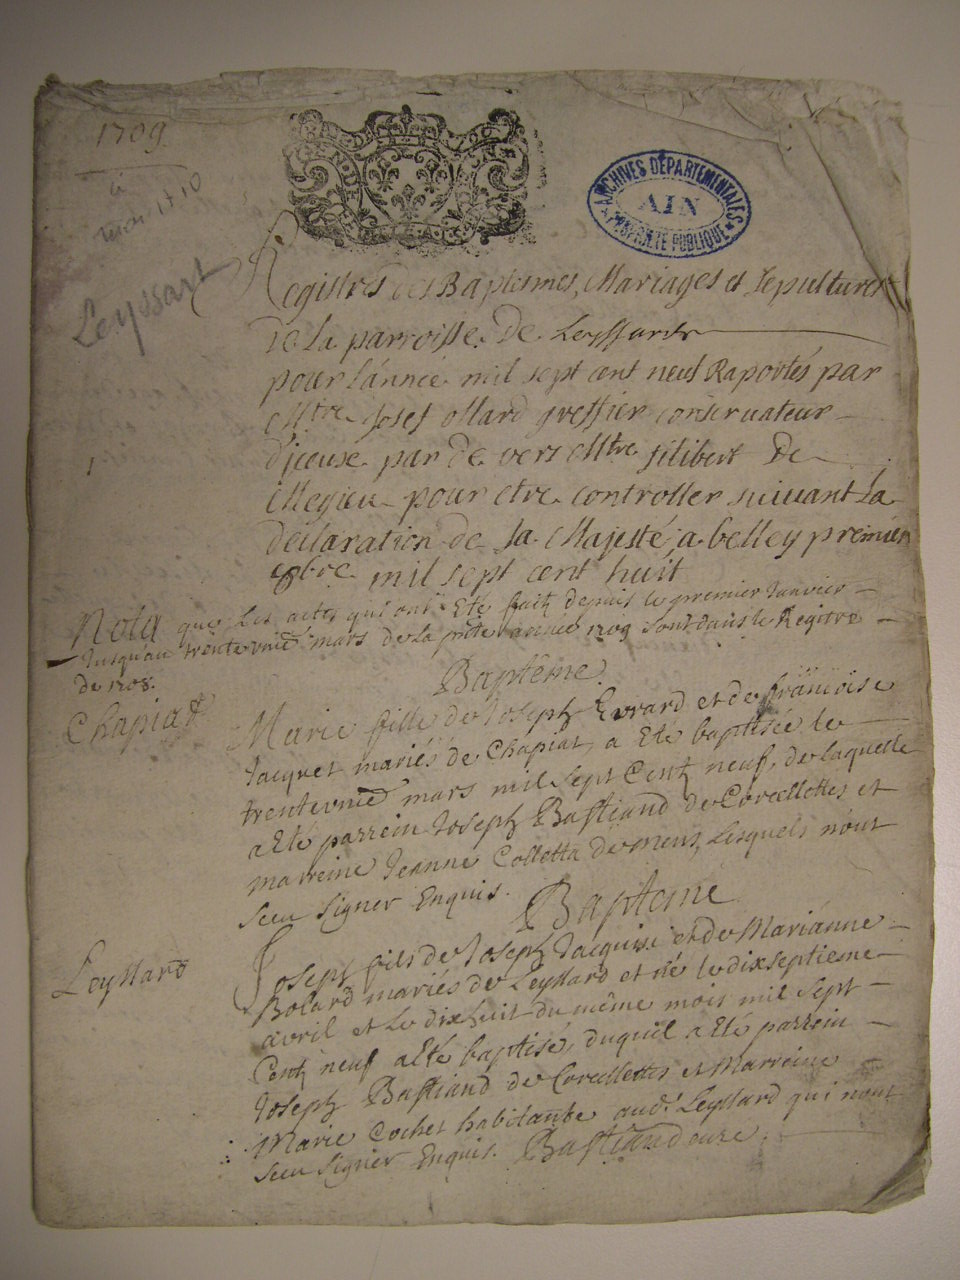 1709
à
1710
Leyssart
ARCHIVES DÉPARTEMENTALES
AIN
PROPRIÉTÉ PUBLIQUE
Registres des Baptesmes, Mariages et Sepultures
De la parroisse De Leyssards
pour l'année mil sept cent neuf Raportés par
Mtre Josef ollard greffier conservateur
d'iceuse par de vers Mtre filibert De
Megieu pour etre controller suivant La
déclaration de sa Majesté a belley premier
8bre mil sept cent huit
Nota que Les actes qui ont Eté fait depuis le premier Janvier
Jusqu'au trente unie mars de la pnte année 1709 sont dans le Registre
de 1708.
Baptême
Chapiat
Marie fille de Joseph Evrard et de françoise
Jacquet mariés de Chapiat, a Eté baptisée le
trente unie mars mil sept Cent neuf, de laquelle
a Eté parrein Joseph Bastiand de Corcellettes et
marreine Jeanne Colletta de mens, Lesquels n'ont
sceu signer Enquis.
Bapteme
Leyssard
Joseph fils de Joseph et de Marianne
Bolard mariés de Leyssard et né le dixseptieme
avril et le dixhuit du même mois mil sept
Cent neuf a Eté baptisé, duquel a Eté parrein
Joseph Bastiand de Corcellettes et Marreine
Marie Cochet habitante aud. Leyssard qui n'ont
sceu signer Enquis. Bastiand cure